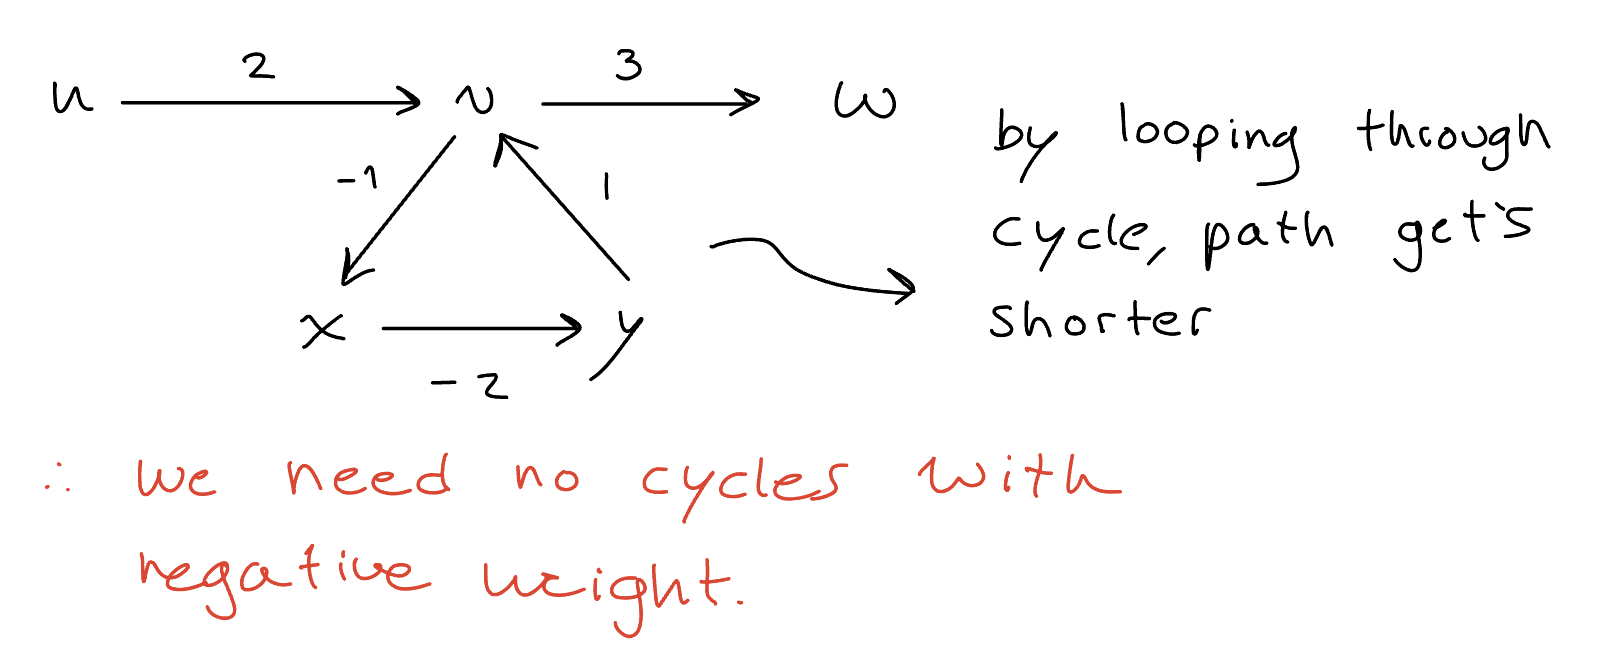 2 3
u v w
-1 1
x y
-2
by looping through
cycle, path get's
shorter
∴ we need no cycles with
negative weight.